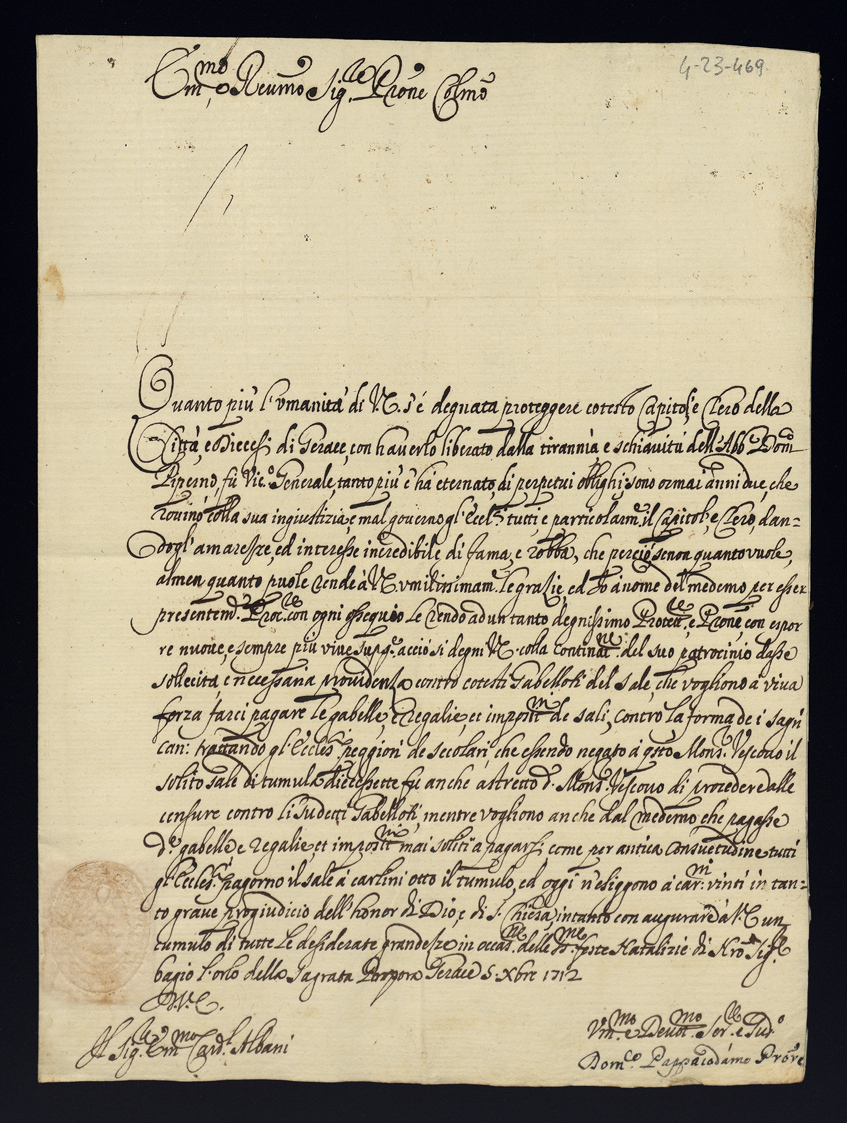 4-23-469
Em.mo e Reumo Sig.re Prone Colmo
Quanto più l'umanità di V.E. s'é degnata proteggere cotesto Capitol, e Clero della
Città, e Diecesi di Gerace, con hauerlo liberato dalla tirannia, e schiavitù dell'Abb.e Dom.co
Piperno, fù Vic.o Generale, tanto più c'hà eternato di perpetui obblighi sono ormai anni due, che
rovinò colla sua ingiustizia, e mal governo gl'Eccl.ci tutti, e particolarm.e il Capitol, e Clero, dan-
dogl'amarezze, ed interesse incredibile di fama, e robba, che perciò se non quanto vuole,
almen quanto puole rende à V.E. umilissimam.e le grazie, ed Io à nome del medemo per esser
presentem.e Proc.re con ogni ossequio le rendo ad un tanto degnissimo Protett.re, e Prone, con espor
re nuove, e sempre più vive supp.e acciò si degni V.E. colla continat.ne del suo patrocinio dasse
sollecita, e necessaria providenza contro cotesti Gabelloti del sale, che vogliono à viva
forza farci pagare le gabelle, e regalie, et imposit.ni de sali, contro la forma de i sagri
can: trattando gl'Eccles.ci peggiori de secolari, che essendo negato à q̃sto Mons.r Vescouo il
solito sale di tumula dieces sette fù anche astretto d.o Mons.r Vescouo di procedere alle
censure contro li sudetti Gabelloti, mentre vogliono anche dal medemo che pagasse
d.e gabelle e regalie, et imposit.ni mai soliti a pagarsi, come per antica consuetudine tutti
gl'Eccles.ci pagorno il sale à carlini otto il tumulo, ed oggi n'esiggono à car.ni vinti in tan-
to grave progiudicio dell'honor di Dio, e di S. Chiesa, intanto con augurare à V.E. un
cumulo di tutte le desiderate grandezze in occas.ne delle S.me feste Natalizie di Nro Sig.re
bagio l'orlo della Sagrata Porpora Gerace 5 Xbre 1712
D.V.E.
Al Sig.re Em.mo Card.l Albani
Um.mo e Deuot.mo Ser.re e Sud.o
Dom.co Pappaiodamo Prore